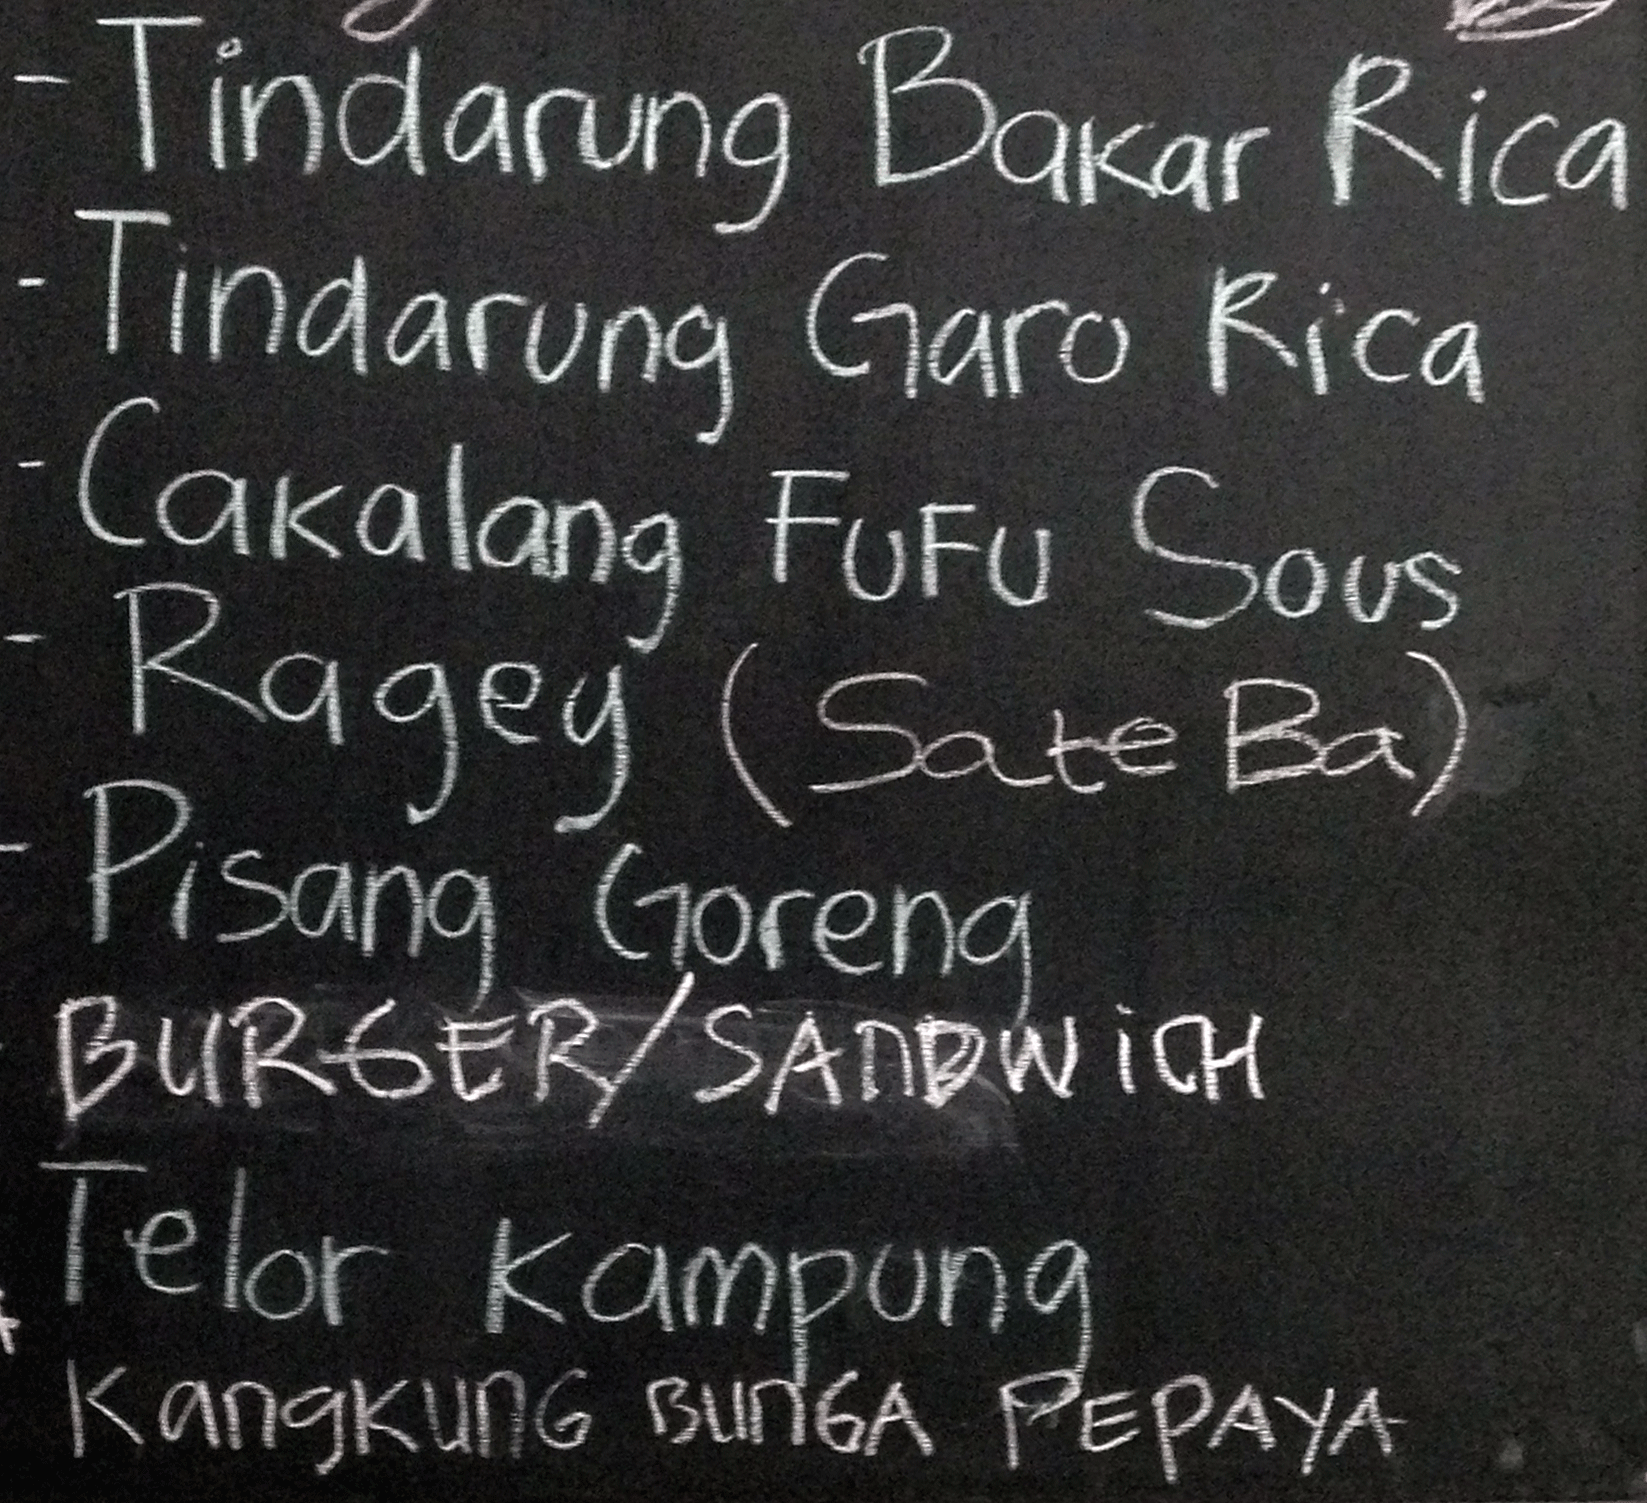 - Tindarung Bakar Rica
- Tindarung Garo Rica
- Cakalang FUFU Sous
- Ragey (Sate Ba)
- Pisang Goreng
- BURGER/SANDWiCH
Telor Kampung
KangKUnG BUnGA PEPAYA